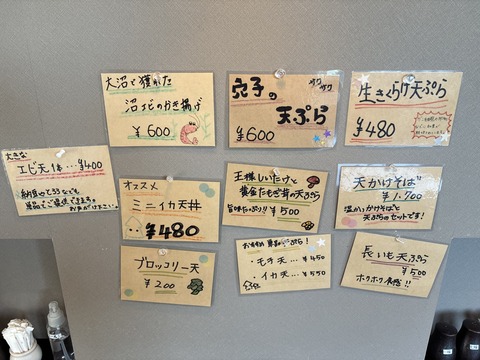 大沼で獲れた
沼エビのかき揚げ
¥600
サクサク
穴子の
天ぷら
¥600
生きくらげ天ぷら
¥480
大きな
エビ天1本…¥400
納豆やとろろなども
単品でご提供できます。
お声がけ下さい。
オススメ
ミニイカ天丼
¥480
王様しいたけと
黄金たもぎ茸の天ぷら
旨味たっぷり!! ¥500
天かけそば
¥1,700
温かいかけそばと
天ぷらのセットです!
ブロッコリー天
¥200
おすすめ 単品天ぷら!
・モチ天…¥450
・イカ天…¥550
長いも天ぷら
¥500
ホクホク食感!!